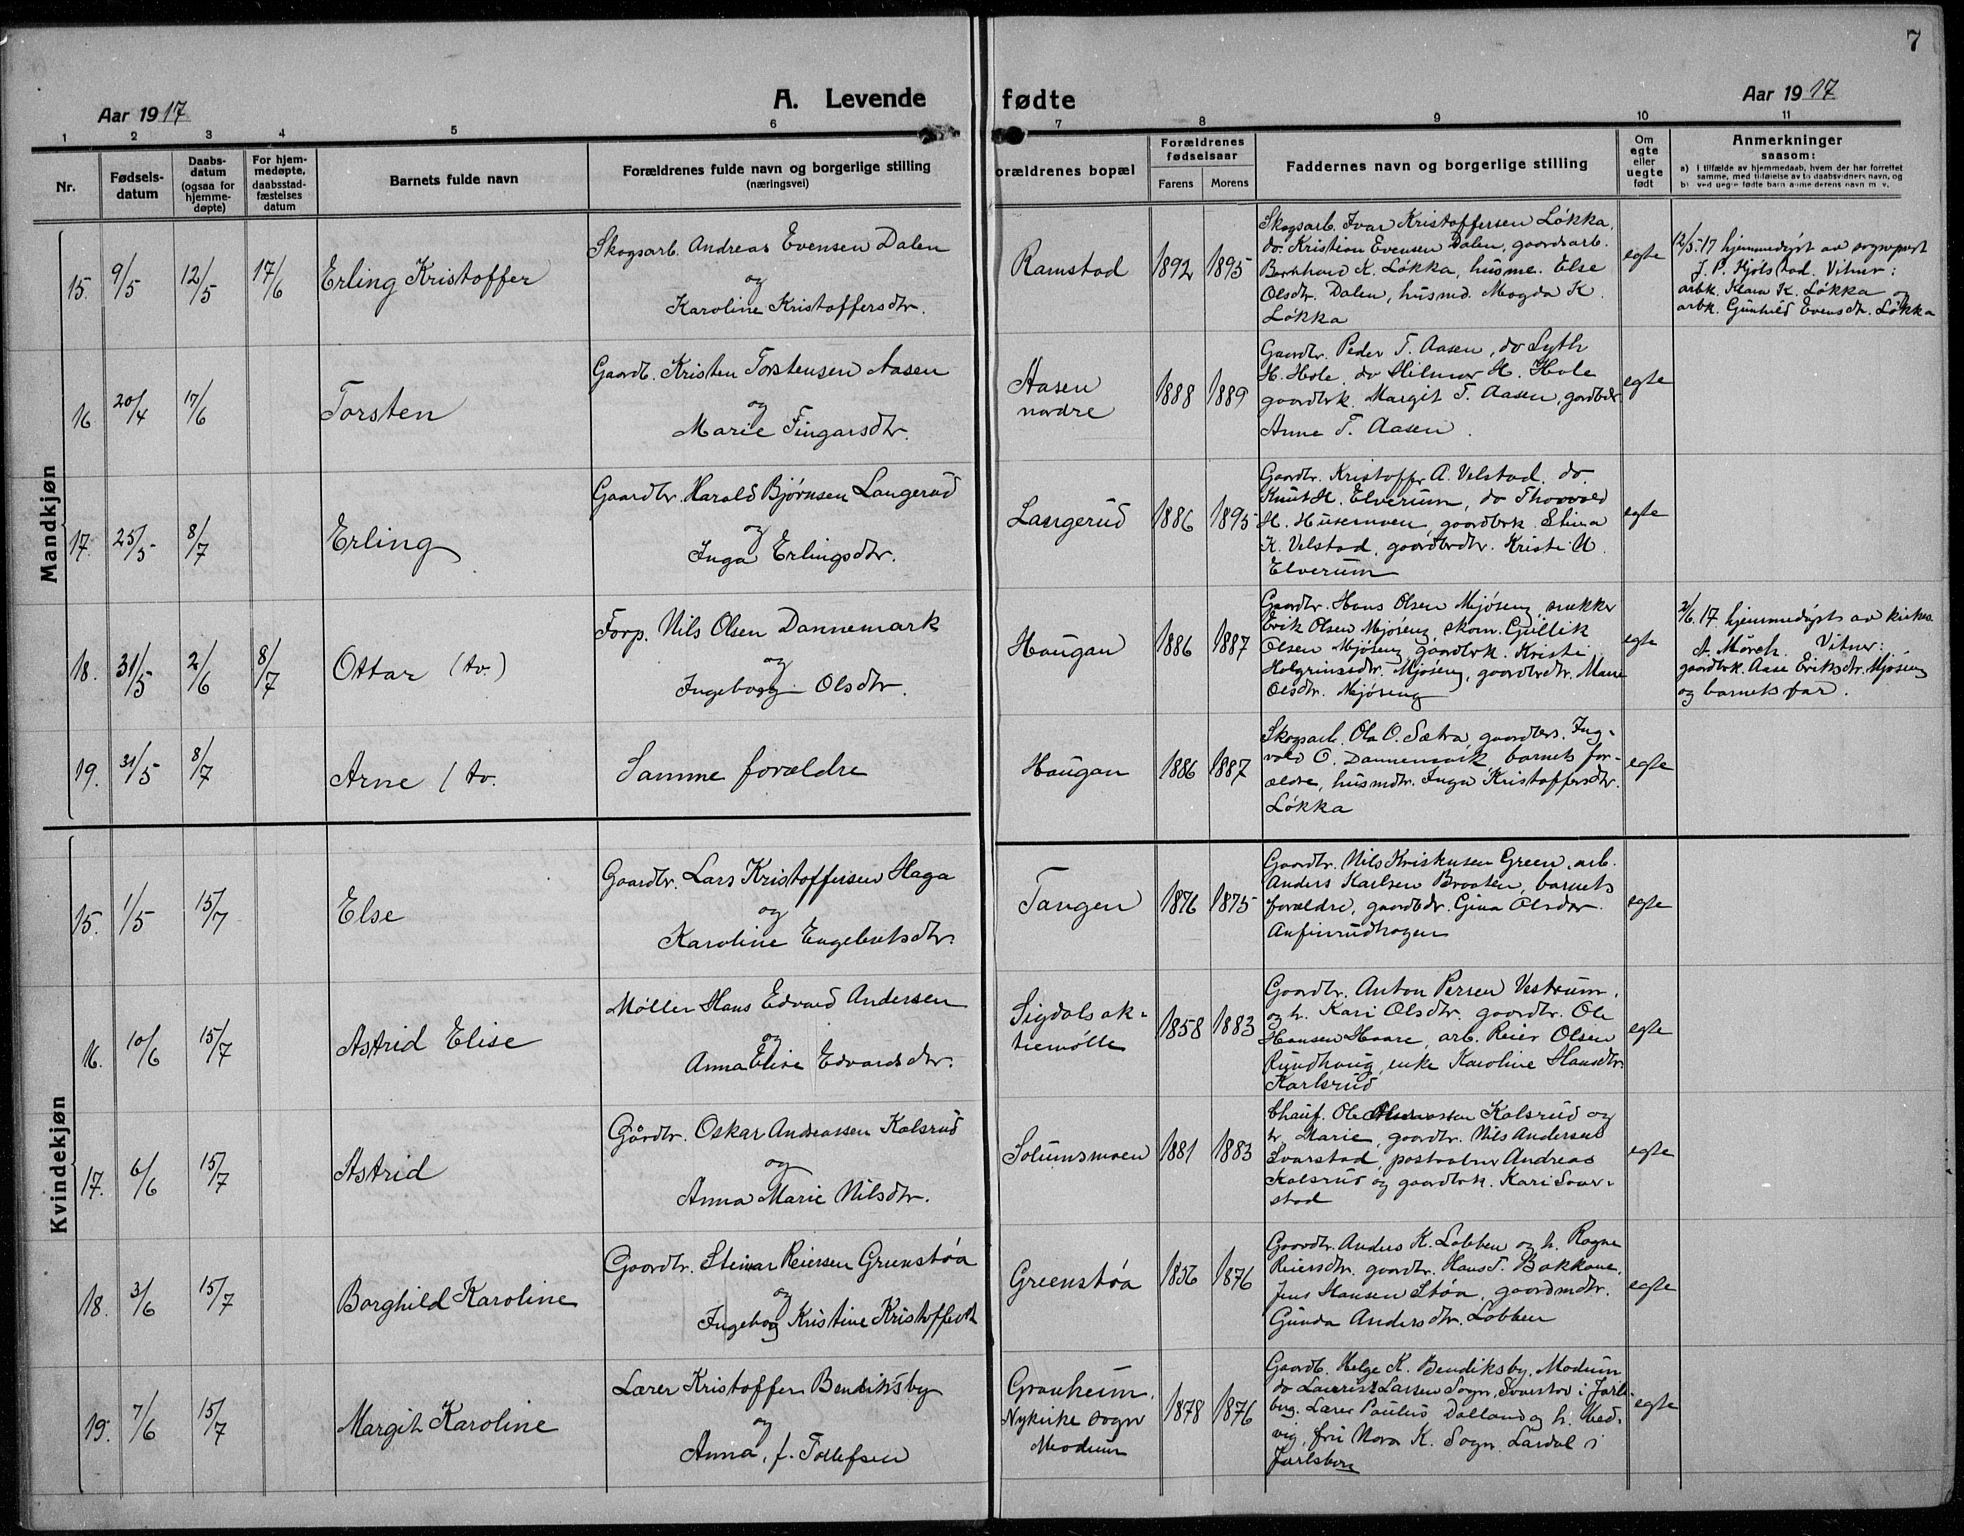 7
Aar 1917
A. Levende
fødte
Aar 1917
1 2 3 4 5 6 7 8 9 10 11
Nr.
Fødsels-
datum
Daabs-
datum
(ogsaa for
hjemme-
døpte)
For hjem-
medøpte,
daabsstad-
fæstelses
datum
Barnets fulde navn
Forældrenes fulde navn og borgerlige stilling
(næringsvei)
orældrenes bopæl
Forældrenes
fødselsaar
Farens Morens
Faddernes navn og borgerlige stilling
Om
egte
eller
uegte
født
Anmerkninger
saasom:
a) I tilfælde av hjemmedaab, hvem der har forrettet
samme, med tilføielse av to daabsvidners navn, og
b) ved uegte fødte barn
Mandkjøn
15. 9/5 12/5 17/6 Erling Kristoffer
Skogsarb. Andreas Evensen Dalen
og
Karoline Kristoffersdtr.
Ramstad 1892 1895
Skogsarb. Ivar Kristoffersen Løkka,
do. Kristian Evensen Dalen, gaardsarb.
Bernhard K. Løkka, husme. Else
Olsdtr. Dalen, husmd. Magda K.
Løkka
egte
12/5.17 hjemmedøpt av sognepest
J. P. Kjølstad. Vitner:
arbk. Klara K. Løkka og
arbk. Gunhild Evensdtr. Løkka
16 20/4 17/6 Torsten
Gaardb. Kristen Torstensen Aasen
og
Marie Fingarsdtr.
Aasen
nordre
1888 1889
Gaardbr. Peder T. Aasen, do Syth
H. Hole, do Hilmar H. Hole
gaardbrk. Margit T. Aasen, gardbdr.
Anne T. Aasen.
egte
17. 25/5 8/7 Erling
Gaardbr. Harald Bjørnsen Langerud
og
Inga Erlingsdtr.
Langerud 1886 1895
Gaardbr. Kristoffer A. Velstad, do
Knut H. Elverum, do Thorvald
H. Husemoen, gaardbrk. Stina
K. Velstad, gaardbrdtr. Kristi
Elverum
egte
18. 31/5 2/6 8/7 Ottar (tv.)
Forp. Nils Olsen Dannemark
og
Ingeborg Olsdtr.
Haugan 1886 1887
Gaardbr. Hans Olsen Mjøseng, snekker
Erik Olsen Mjøseng, skom. Gullik
Olsen Mjøseng gaardbrk. Kristi
Holgrimsdtr. Mjøseng, gaardbrdtr. Marie
Olsdtr. Mjøseng
egte
2/6.17 hjemmedøpt av kirkes.
A. Mørch. Vitner:
gaardbrk. Aase Eriksdtr. Mjøseng
og barnets far.
19. 31/5 8/7 Arne (tv.
Samme forældre
Haugan 1886 1887
Skogsarb. Ola O. Sætra, gaardbrs. Ing-
vald O. Dannemark, barnets for-
ældre, husmdtr. Inga Kristoffersdtr.
Løkka
egte
Kvindekjøn
15. 1/5 15/7 Else
Gaardbr. Lars Kristoffersen Haga
og
Karoline Engebretsdtr.
Tangen 1876 1875
Gaardbr. Nils Kristensen Green, arb.
Anders Karlsen Braaten, barnets
forældre, gaardbdr. Gina Olsdtr.
Anfinrudhagen
egte
16. 10/6 15/7 Astrid Elise
Møller Hans Edvard Andersen
og
Anna Elise Edvardsdtr.
Sigdals ak-
tiemølle
1858 1883
Gaardbr. Anton Persen Vestrum,
og h. Kari Olsdtr. gaardbr. Ole
Hansen Haare, arb. Reier Olsen
Rundhaug, enke Karoline Hansdtr.
Karlsrud
egte
17. 6/6 15/7 Astrid
Gårdbr. Oskar Andreassen Kolsrud
og
Anna Marie Nilsdtr.
Solumsmoen 1881 1883
Chauf. Ole Kolsrud og
h. Marie, gaardbr. Nils Andersen
Svarstad, postaabner Andreas
Kolsrud og gaardbrk. Kari Svar-
stad
egte
18. 3/6 15/7 Borghild Karoline
Gaardbr. Steinar Reiersen Grenstøa
og
Ingeborg Kristine Kristoffersdt
Greenstøa 1876
Gaardbr. Anders K. Lobben og h. Ragne
Reiersdtr. gaardbr. Hans T. Bakkane,
Jens Hansen Støa, gaardmdtr.
Gunda Andersdtr. Lobben
egte
19. 7/6 15/7 Margit Karoline
Lærer Kristoffer Bendiksby
og
Anna, f. Tollefsen
Granheim,
Nykirke sogn
Modum
1878 1876
Gaardb. Helge K. Bendiksby, Modum
do Laurits Larsen Sogn, Svarstad i Jarls-
berg. Lærer Paulus Dalland og h. Hed-
vig, fru Nora K. Sogn. Lardal i
Jarlsberg
egte